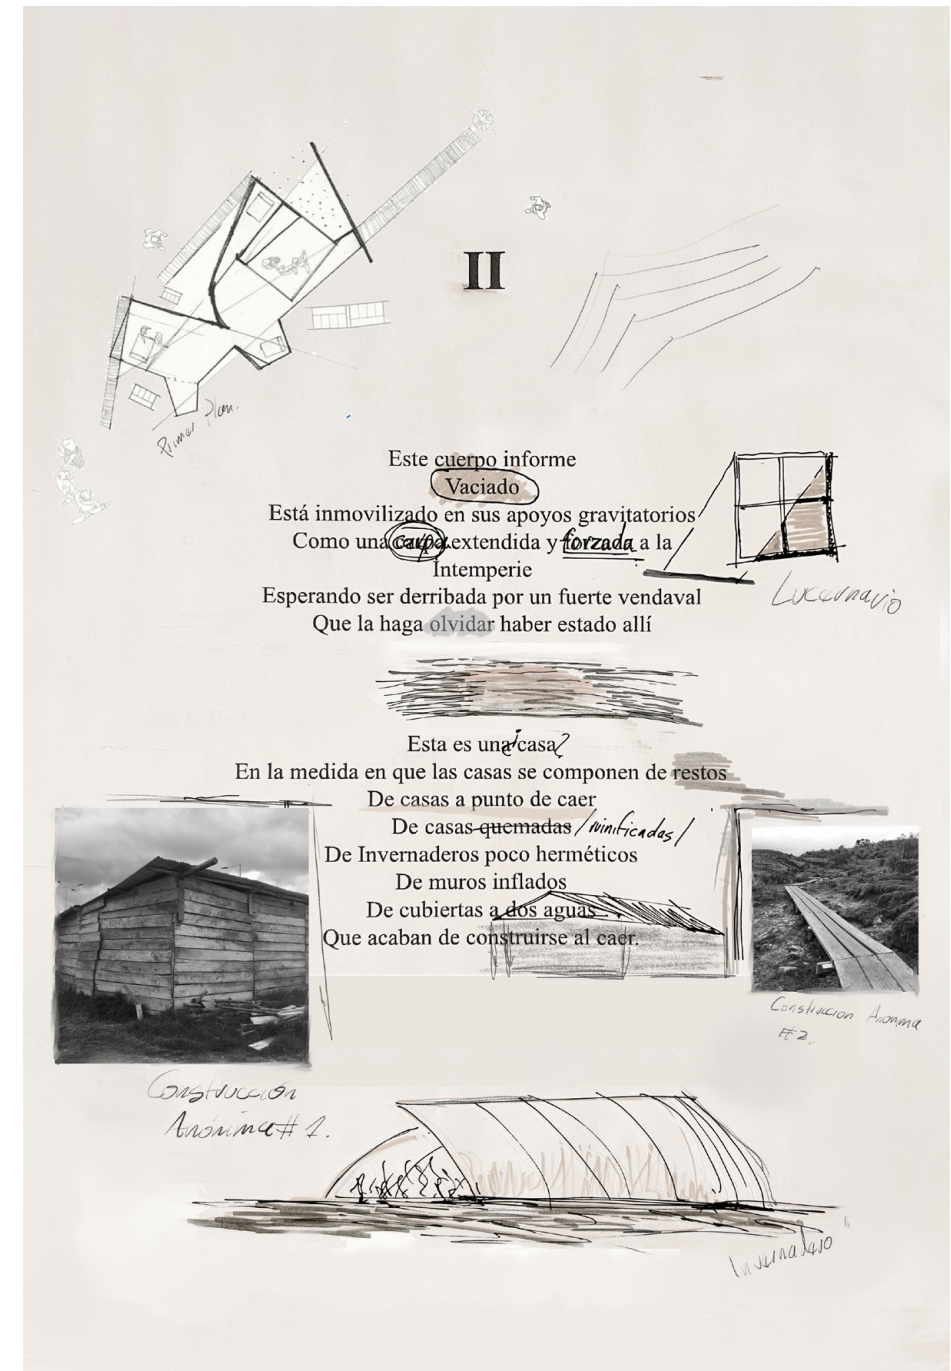 II
Primer Plan.
Este cuerpo informe
Vaciado
Está inmovilizado en sus apoyos gravitatorios
Como una carpa extendida y forzada a la
Intemperie
Lucernario
Esperando ser derribada por un fuerte vendaval
Que la haga olvidar haber estado allí
Esta es una ¿casa?
En la medida en que las casas se componen de restos
De casas a punto de caer
De casas quemadas /ruinificadas/
De Invernaderos poco herméticos
De muros inflados
De cubiertas a dos aguas
Que acaban de construirse al caer.
Construccion Anonima
#2.
Construcción
Anónima # 1.
Invernadero